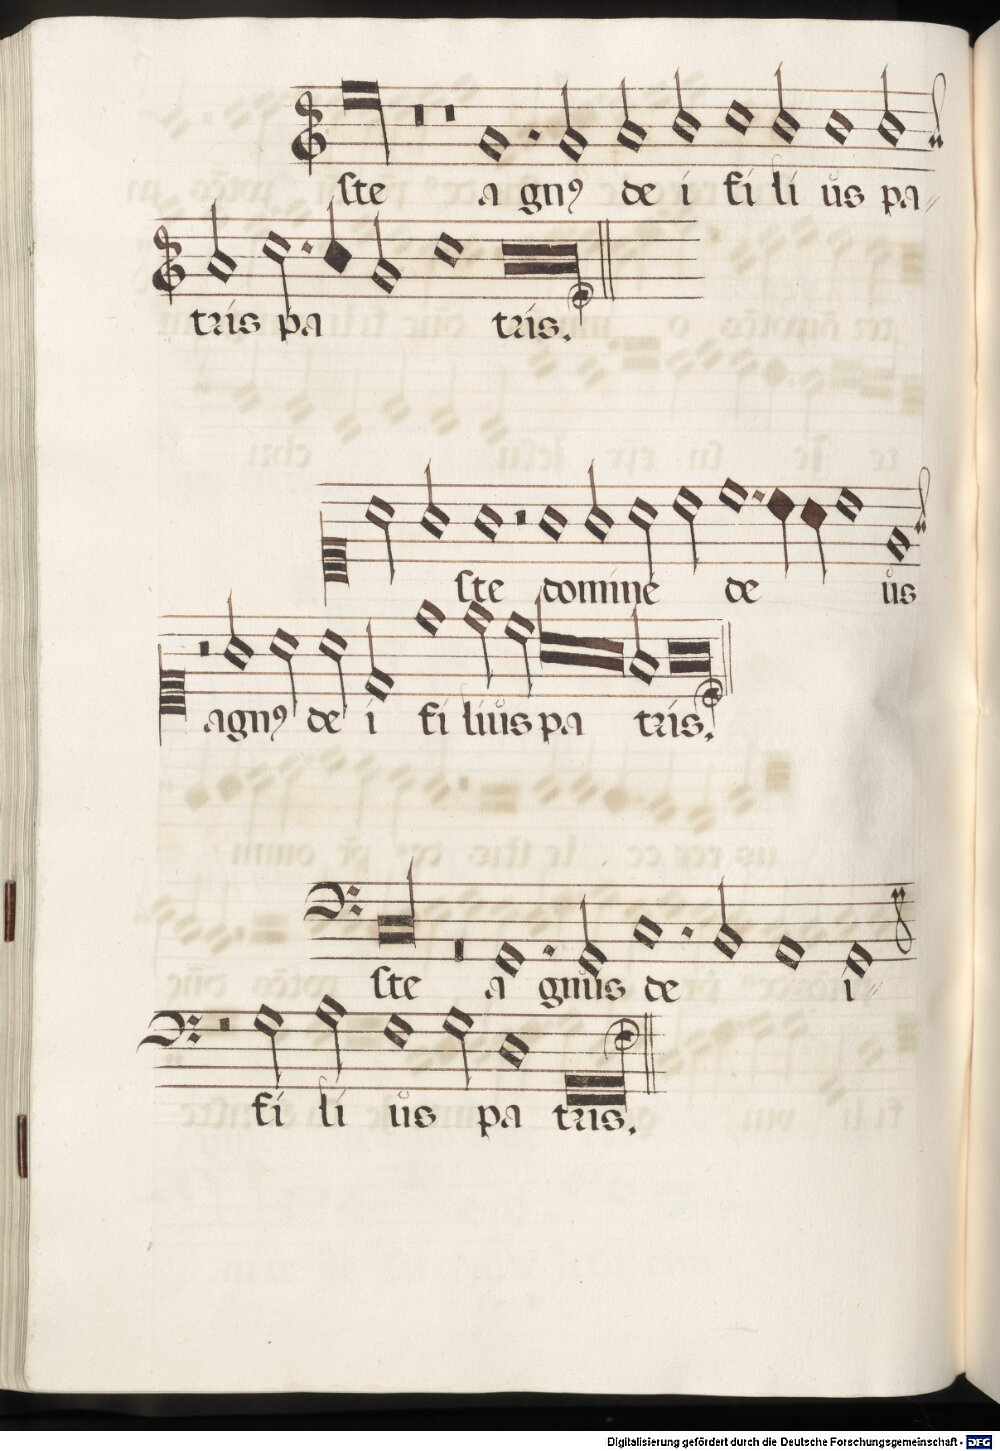 ste a gnꝰ de i fi li us pa
tris pa tris.
ste domine de us
agnꝰ de i fi lius pa tris.
ste a gnus de i
fi li us pa tris.
Digitalisierung gefördert durch die Deutsche Forschungsgemeinschaft - DFG